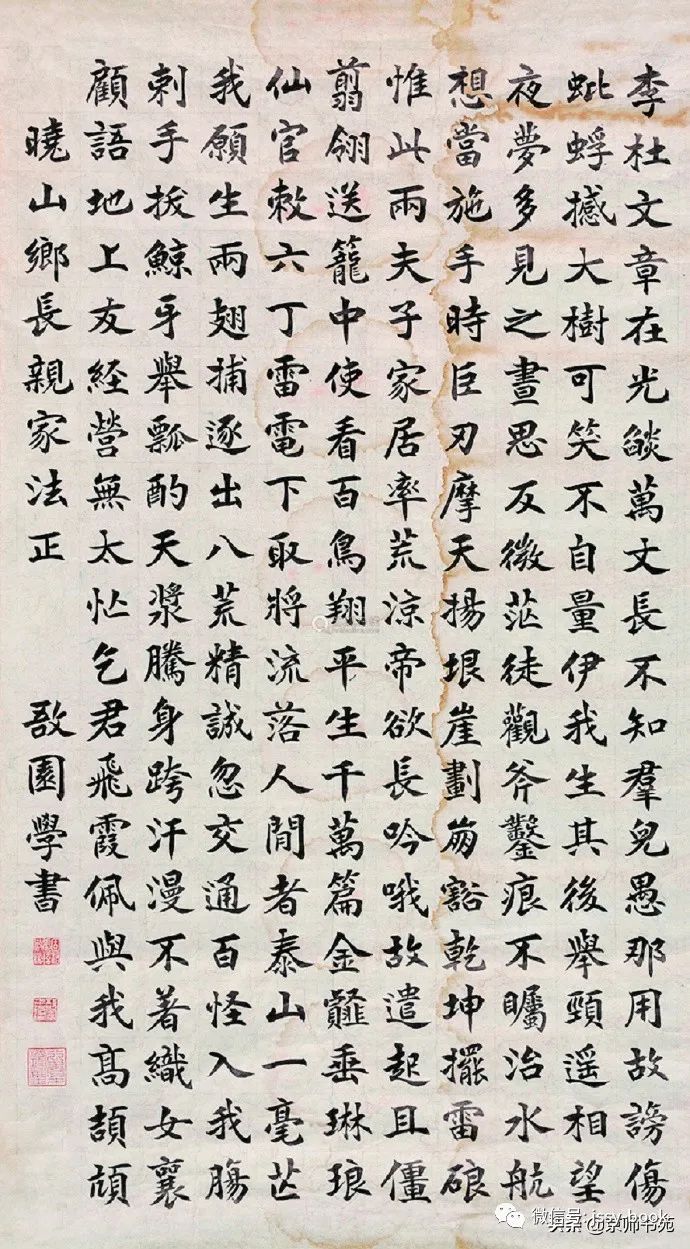 李杜文章在光燄萬丈長不知羣兒愚那用故謗傷
蚍蜉撼大樹可笑不自量伊我生其後舉頸遥相望
夜夢多見之晝思反微茫徒觀斧鑿痕不矚治水航
想當施手時巨刃摩天揚垠崖劃崩豁乾坤擺雷硠
惟此兩夫子家居率荒涼帝欲長吟哦故遣起且僵
翦翎送籠中使看百鳥翔平生千萬篇金薤垂琳琅
仙官敕六丁雷電下取將流落人間者泰山一毫芒
我願生兩翅捕逐出八荒精誠忽交通百怪入我腸
刺手拔鯨牙舉瓢酌天漿騰身跨汗漫不著織女襄
顧語地上友經營無太忙乞君飛霞佩與我高頡頏
曉山鄉長親家法正
敔園學書
微信号: jssy-book
头条@京师书苑